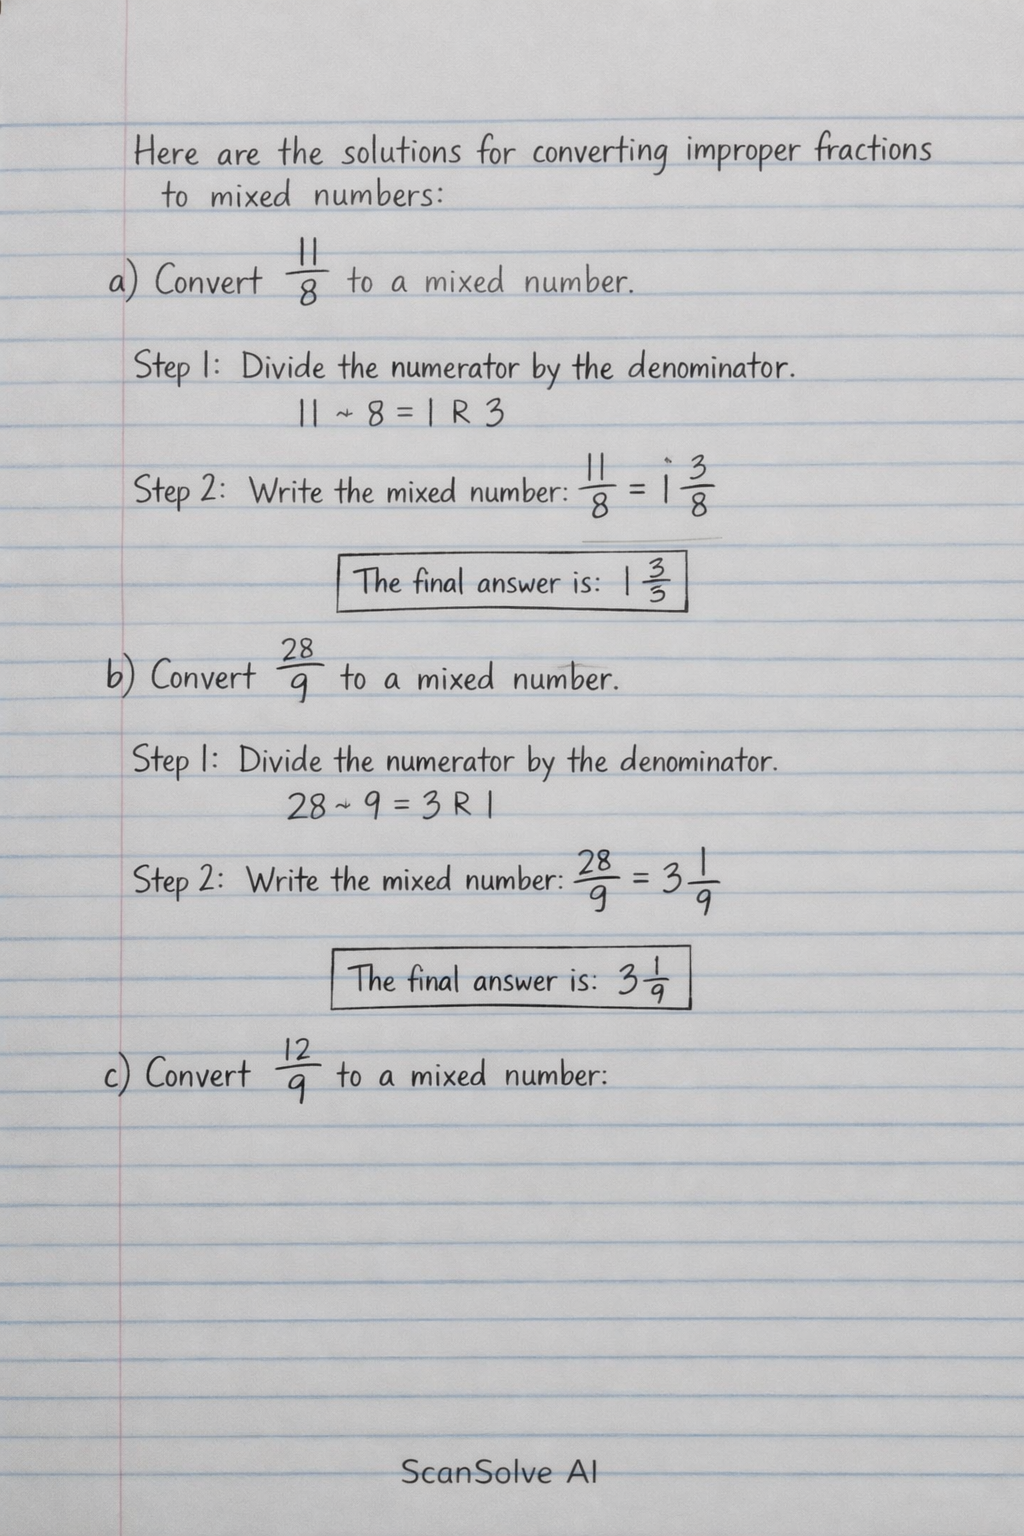 Here are the solutions for converting improper fractions
to mixed numbers:
a) Convert 11/8 to a mixed number.
Step 1: Divide the numerator by the denominator.
11 ~ 8 = 1 R 3
Step 2: Write the mixed number: 11/8 = 1 3/8
The final answer is: 1 3/5
b) Convert 28/9 to a mixed number.
Step 1: Divide the numerator by the denominator.
28 ~ 9 = 3 R 1
Step 2: Write the mixed number: 28/9 = 3 1/9
The final answer is: 3 1/9
c) Convert 12/9 to a mixed number:
ScanSolve AI